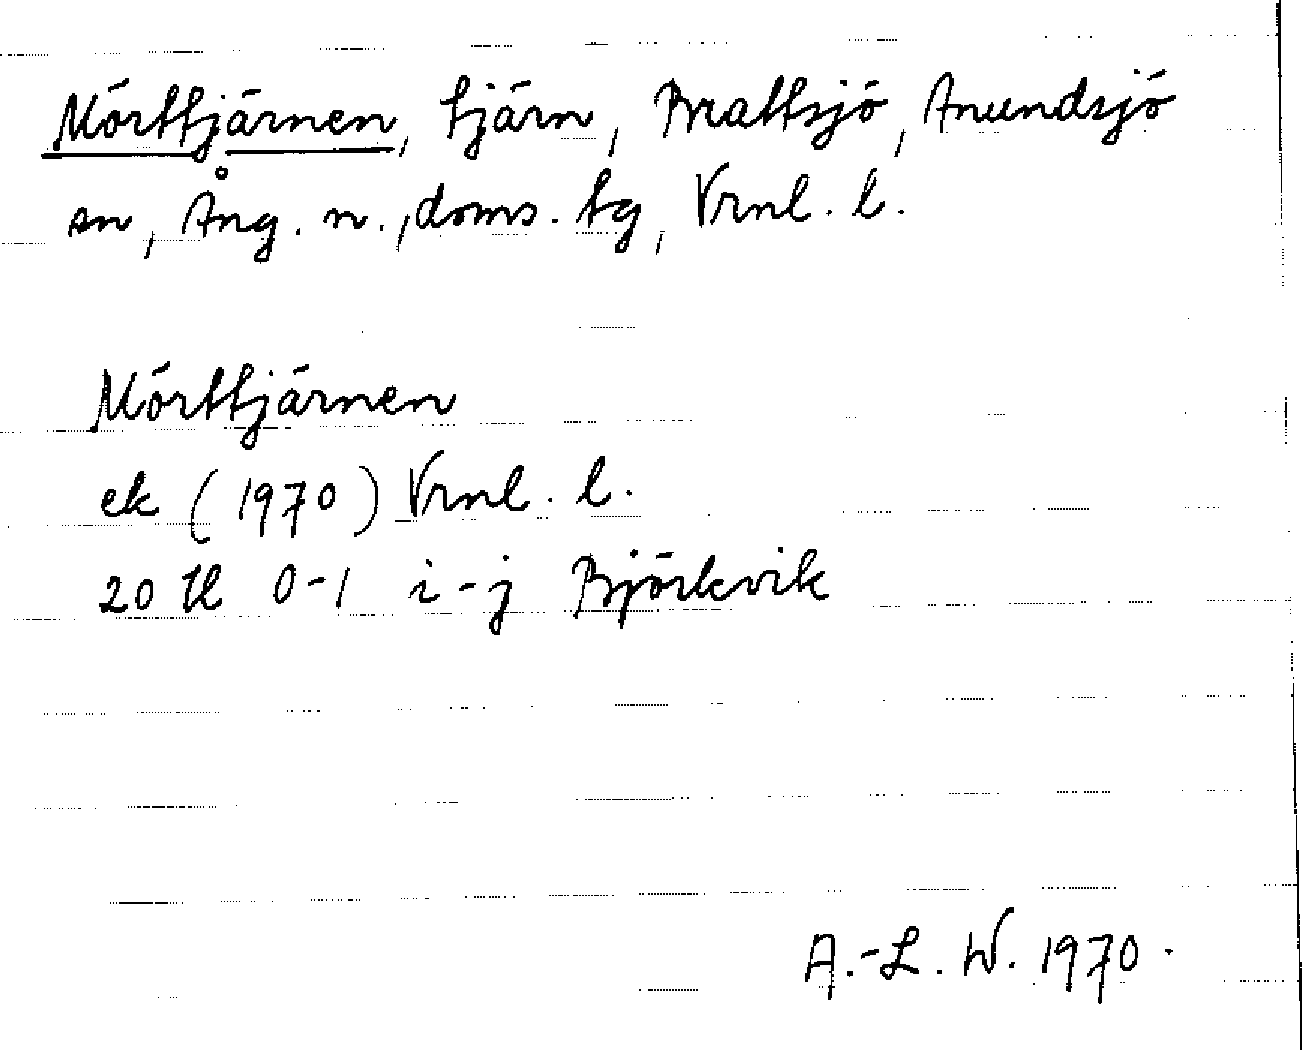 Mörttjärnen, tjärn, Brattsjö, Anundsjö
sn, Ång. n., doms. tg, Vrnl. l.
Mörttjärnen
ek (1970) Vrnl. l.
20 H 0-1 i-j Björkvik
A.-L. W. 1970.